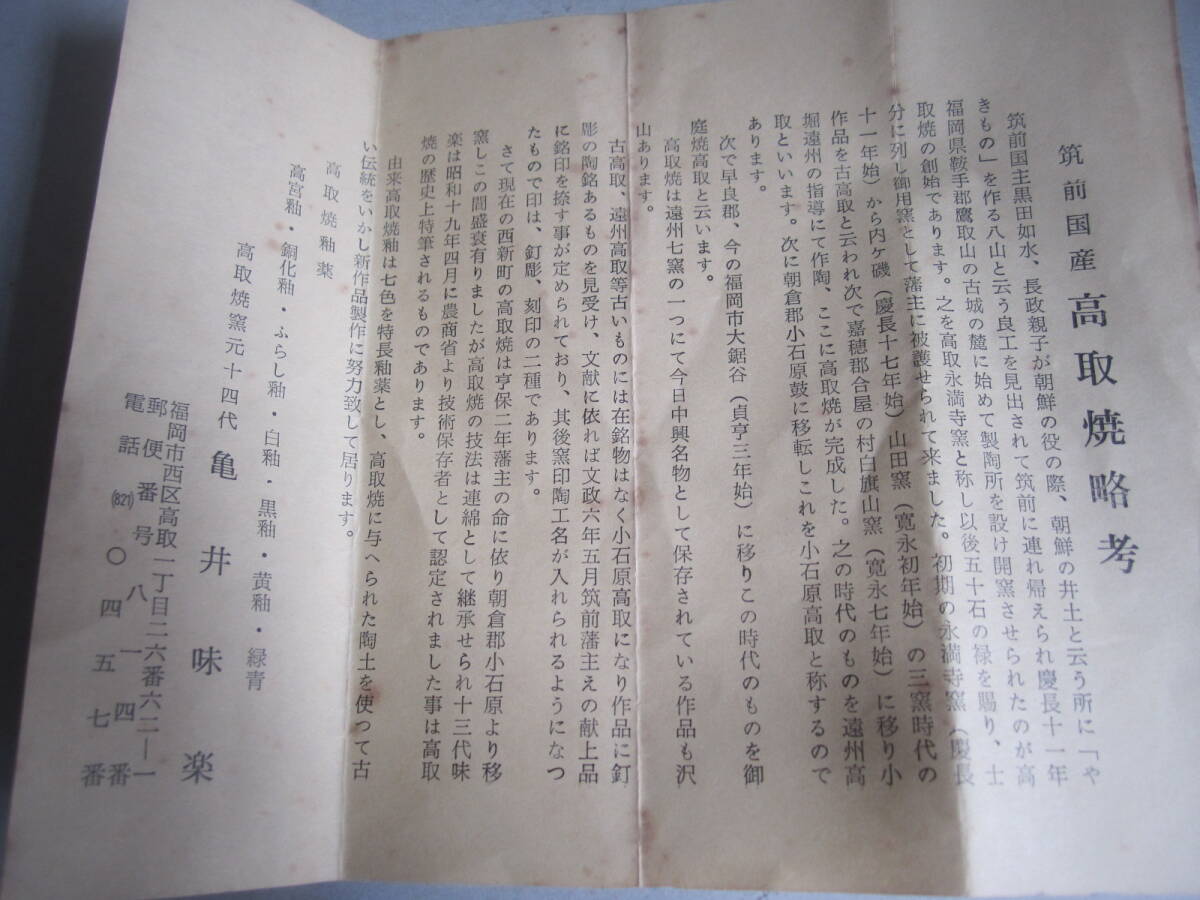 筑前国産高取焼略考
筑前国主黒田如水、長政親子が朝鮮の役の際、朝鮮の井土と云う所に「や
きもの」を作る八山と云う良工を見出されて筑前に連れ帰えられ慶長十一年
福岡県鞍手郡鷹取山の古城の麓に始めて製陶所を設け開窯させられたのが高
取焼の創始であります。之を高取永満寺窯と称し以後五十石の禄を賜り、士
分に列し御用窯として藩主に被護せられて来ました。初期の永満寺窯（慶長
十一年始）から内ヶ磯（慶長十七年始）山田窯（寛永初年始）の三窯時代の
作品を古高取と云われ次で嘉穂郡合屋の村白旗山窯（寛永七年始）に移り小
堀遠州の指導にて作陶、ここに高取焼が完成した。之の時代のものを遠州高
取といいます。次に朝倉郡小石原鼓に移転しこれを小石原高取と称するので
あります。
次で早良郡、今の福岡市大鋸谷（貞亨三年始）に移りこの時代のものを御
庭焼高取と云います。
高取焼は遠州七窯の一つにて今日中興名物として保存されている作品も沢
山あります。
古高取、遠州高取等古いものには在銘物はなく小石原高取になり作品に釘
彫の陶銘あるものを見受け、文献に依れば文政六年五月筑前藩主えの献上品
に銘印を捺す事が定められており、其後窯印陶工名が入れられるようになつ
たもので印は、釘彫、刻印の二種であります。
さて現在の西新町の高取焼は亨保二年藩主の命に依り朝倉郡小石原より移
窯しこの間盛衰有りましたが高取焼の技法は連綿として継承せられ十三代味
楽は昭和十九年四月に農商省より技術保存者として認定されました事は高取
焼の歴史上特筆されるものであります。
由来高取焼釉は七色を特長釉薬とし、高取焼に与へられた陶土を使つて古
い伝統をいかし新作品製作に努力致して居ります。
高取焼釉薬
高宮釉・銅化釉・ふらし釉・白釉・黒釉・黄釉・緑青
高取焼窯元十四代 亀井味楽
福岡市西区高取一丁目二六番六二―一
郵便番号 八一四番
電話 (821) 〇四五七番